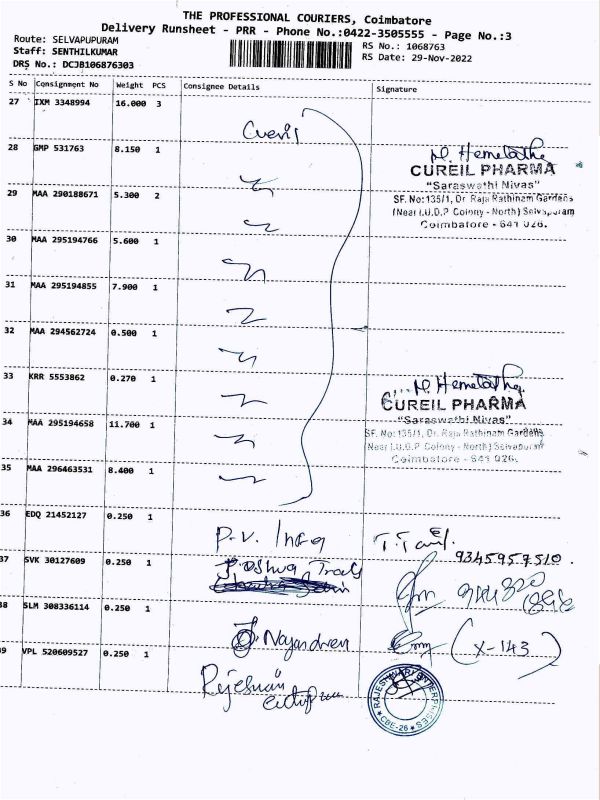 THE PROFESSIONAL COURIERS, Coimbatore
Delivery Runsheet - PRR - Phone No.:0422-3505555 - Page No.:3
Route: SELVAPUPURAM
Staff: SENTHILKUMAR
DRS No.: DCJB106876303
RS No.: 1068763
RS Date: 29-Nov-2022
S No Consignment No Weight PCS Consignee Details Signature
27 IXM 3348994 16.000 3
28 GMP 531763 8.150 1
M. Hemelathe
CUREIL PHARMA
"Saraswathi Nivas"
SF. No:135/1, Dr. Raja Rathinam Gardens
(Near I.U.D.P Colony - North) Selvapuram
Coimbatore - 641 026.
29 MAA 290188671 5.300 2
30 MAA 295194766 5.600 1
31 MAA 295194855 7.900 1
32 MAA 294562724 0.500 1
33 KRR 5553862 0.270 1
M. Hemelathe
CUREIL PHARMA
"Saraswathi Nivas"
SF. No:135/1, Dr. Raja Rathinam Gardens
(Near I.U.D.P Colony - North) Selvapuram
Coimbatore - 641 026.
34 MAA 295194658 11.700 1
35 MAA 296463531 8.400 1
36 EDQ 21452127 0.250 1
P.V.
9345957510
37 SVK 30127609 0.250 1
38 SLM 308336114 0.250 1
(X-143)
39 VPL 520609527 0.250 1
RAJESHWARI ENTERPRISES
CBE-26